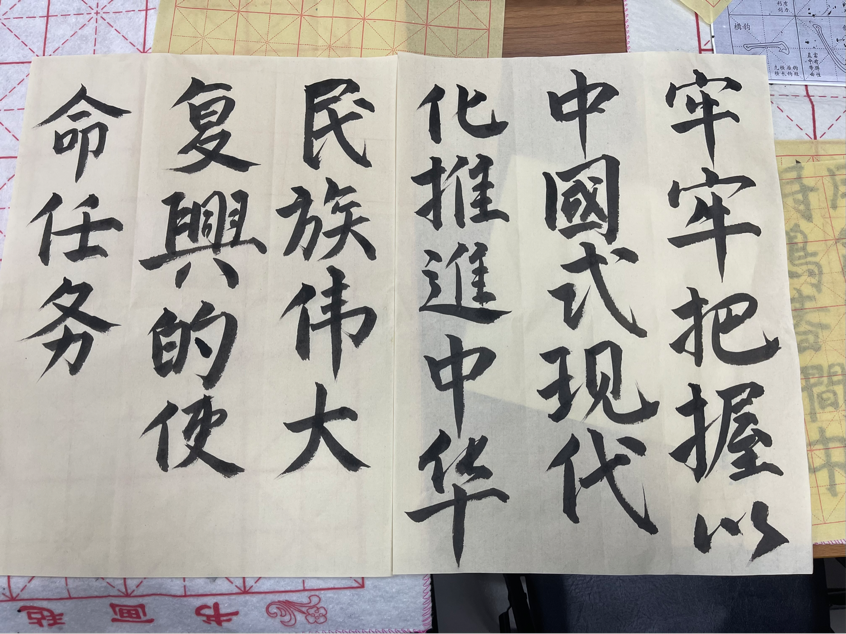 牢牢把握以
中國式现代
化推進中华
民族伟大
复興的使
命任务
书画毡